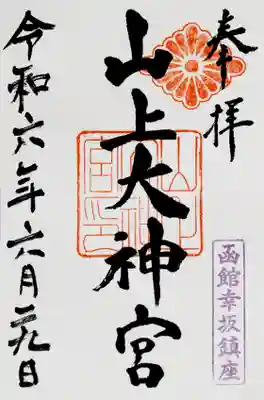 奉拝
山上大神宮
令和六年六月二九日
函館幸坂鎮座